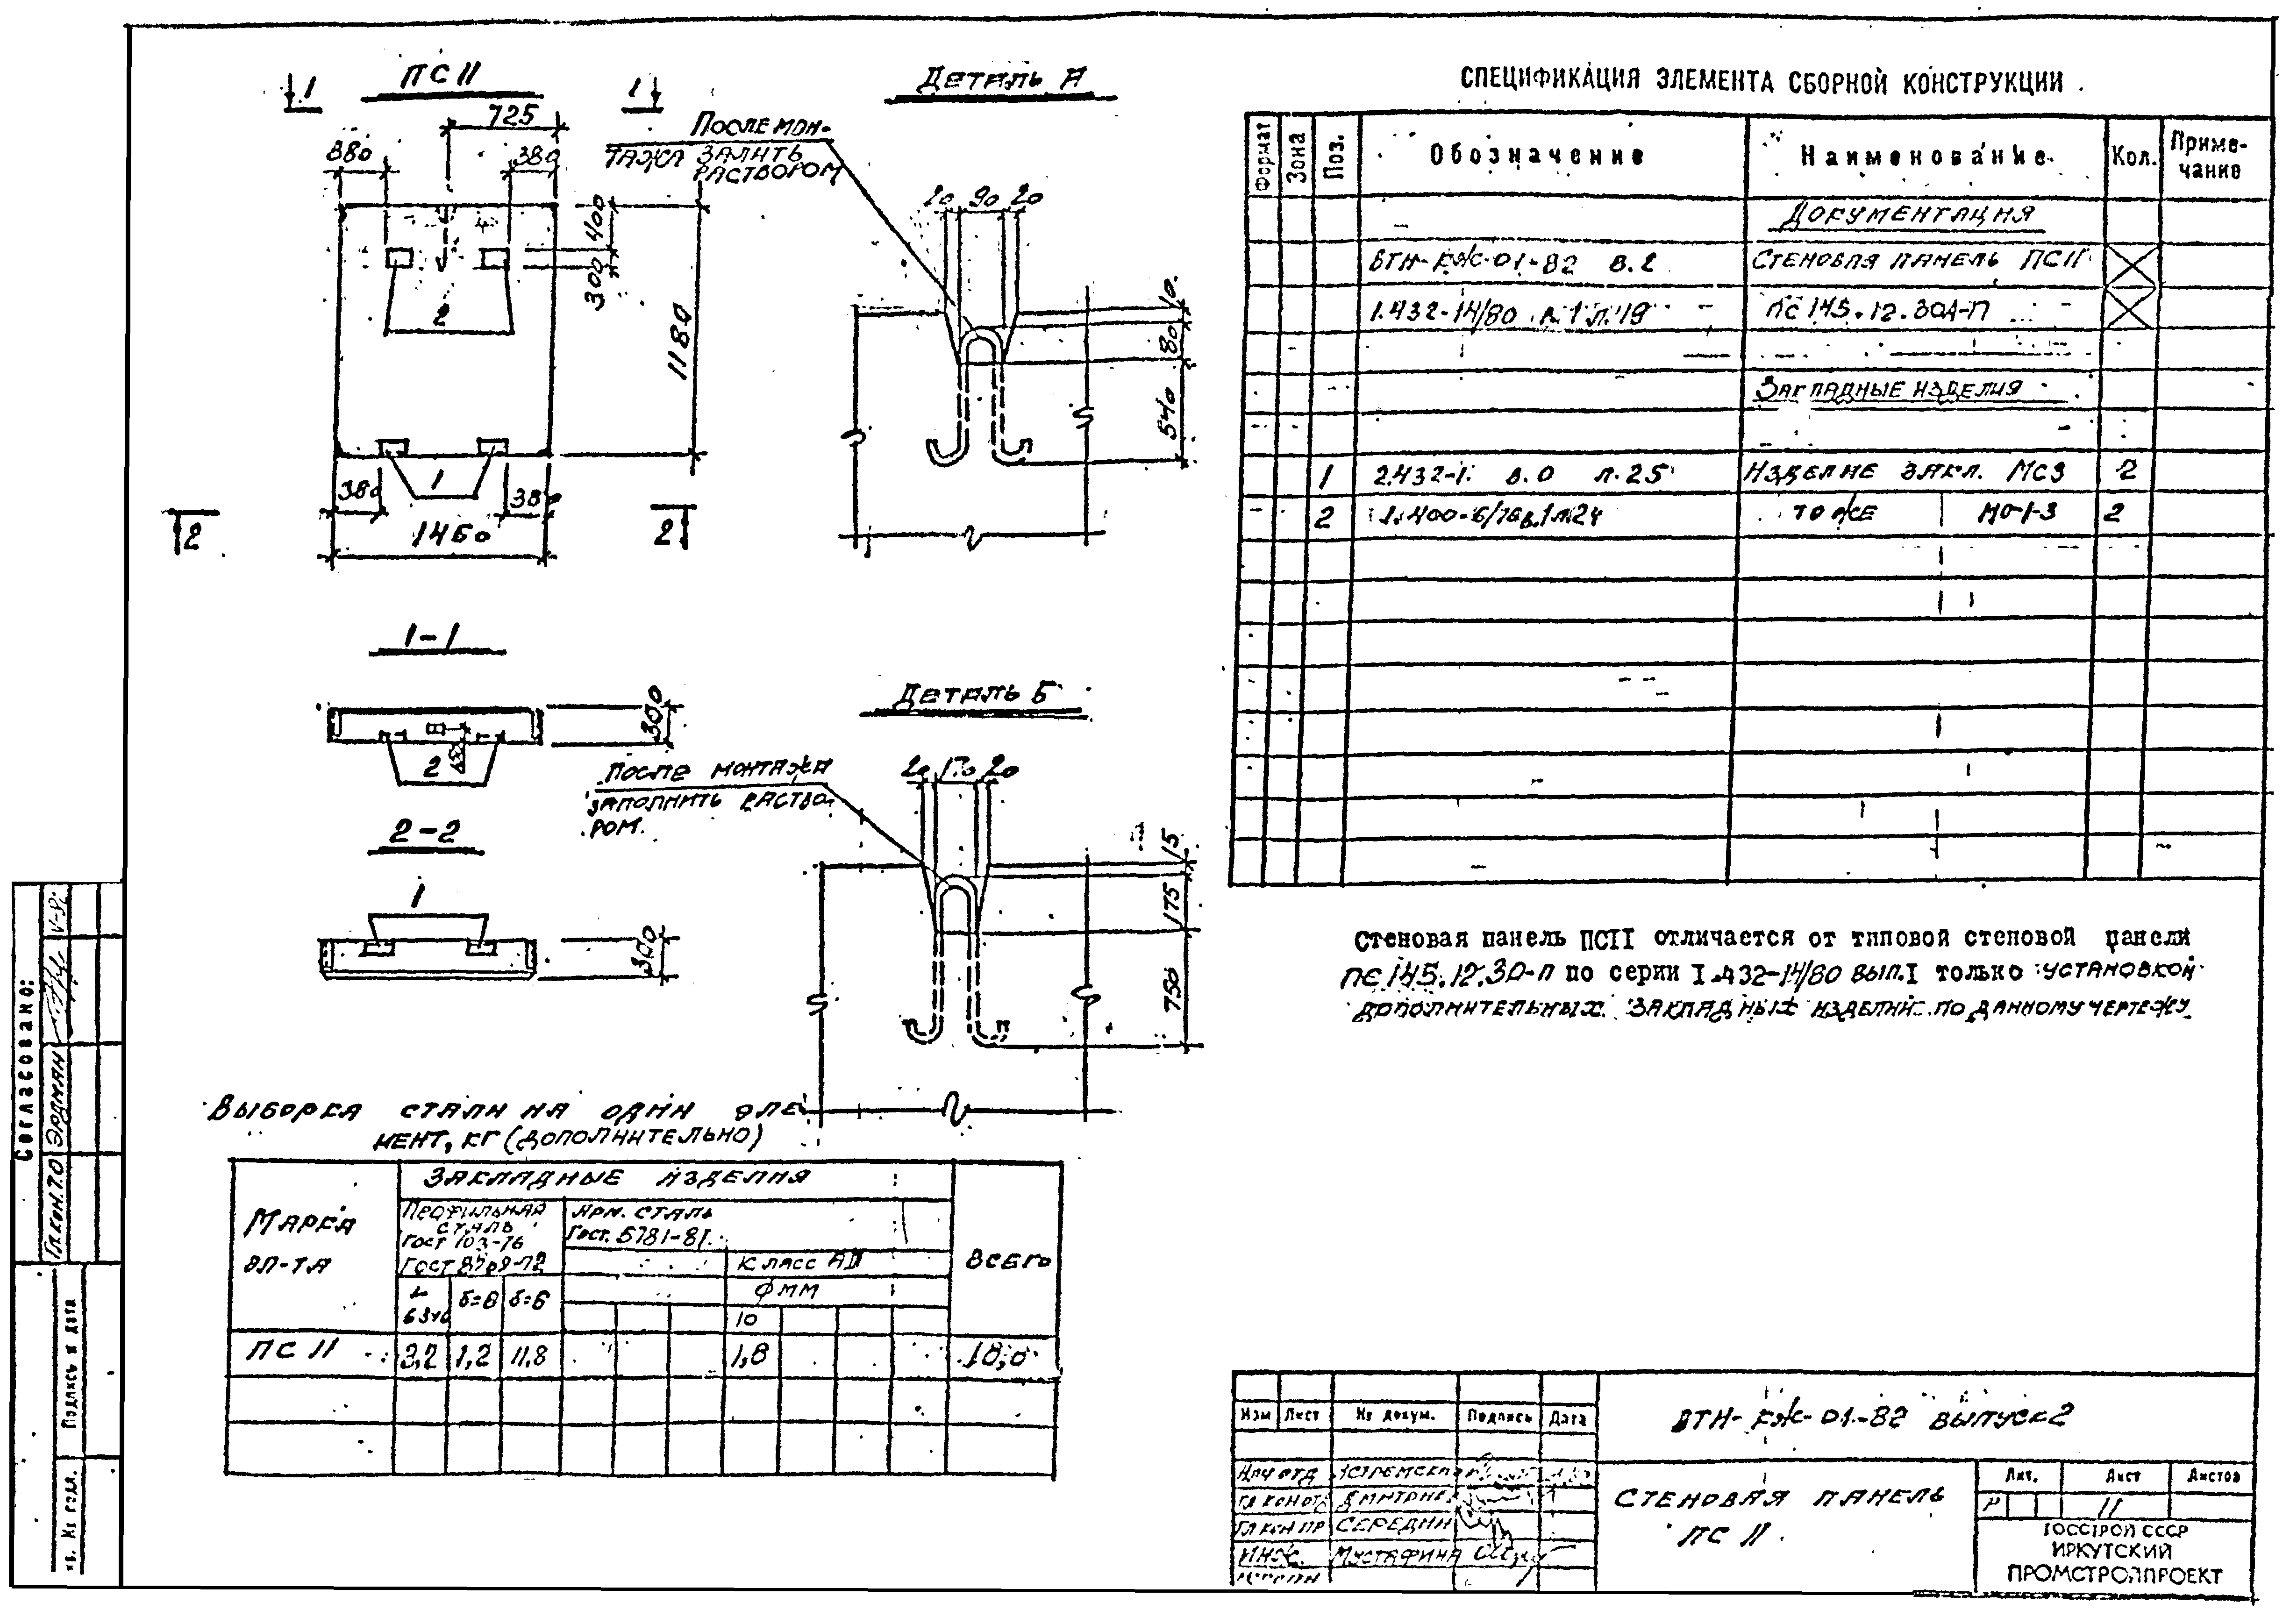 ПС II
1
1
725
380
380
400
300
1180
2
1
380
380
1460
2
2
1-1
300
2
2-2
1
300
Деталь А
После мон-
тажа залить
раствором
20 90 20
10
80
540
Деталь Б
После монтажа
заполнить раство-
ром.
20 170 20
15
175
750
Выборка стали на один эле-
мент, кг (дополнительно)
Марка
эл-та
Закладные изделия
Всего
Профильная
сталь
Гост 103-76
Гост 8509-72
Арм. сталь
Гост. 5781-81
Класс АII
Ф мм
δ=8 δ=6
10
ПС II 3,2 1,2 11,8 1,8 18,0
СПЕЦИФИКАЦИЯ ЭЛЕМЕНТА СБОРНОЙ КОНСТРУКЦИИ
Формат Зона Поз. Обозначение Наименование Кол. Приме-
чание
Документация
ВТН-КЖ-01-82 В.2 Стеновая панель ПСII
1.432-14/80 в.1 л.19 ПС 145.12.30А-П
Закладные изделия
1 2.432-1. в.0 л.25 Изделие закл. МС3 2
2 1.400-6/76 в.1 л.24 То же МО-1-3 2
Стеновая панель ПСII отличается от типовой стеновой панели
ПС 145.12.30-П по серии I.432-14/80 вып.I только установкой
дополнительных закладных изделий по данному чертежу
Изм Лист № докум. Подпись Дата
ВТН-КЖ-01-82 выпуск 2
Нач отд
Гл кон пр Середин
Инж. Мустафина
Стеновая панель
ПС II
Лит. Лист Листов
Р II
ГОССТРОЙ СССР
ИРКУТСКИЙ
ПРОМСТРОЙПРОЕКТ
Согласовано:
Гл.кон.Т.О Эрдман
Подпись и дата